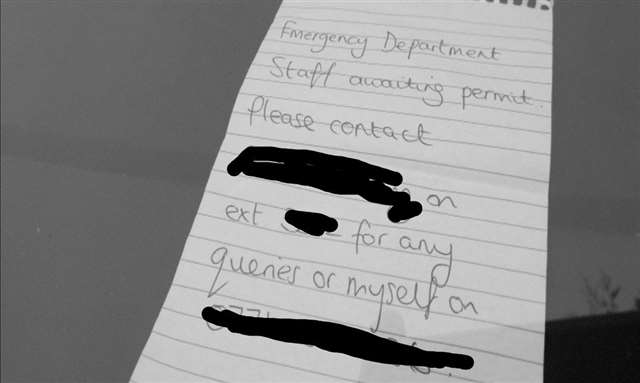 Emergency Department
Staff awaiting permit.
Please contact
on
ext for any
queries or myself on